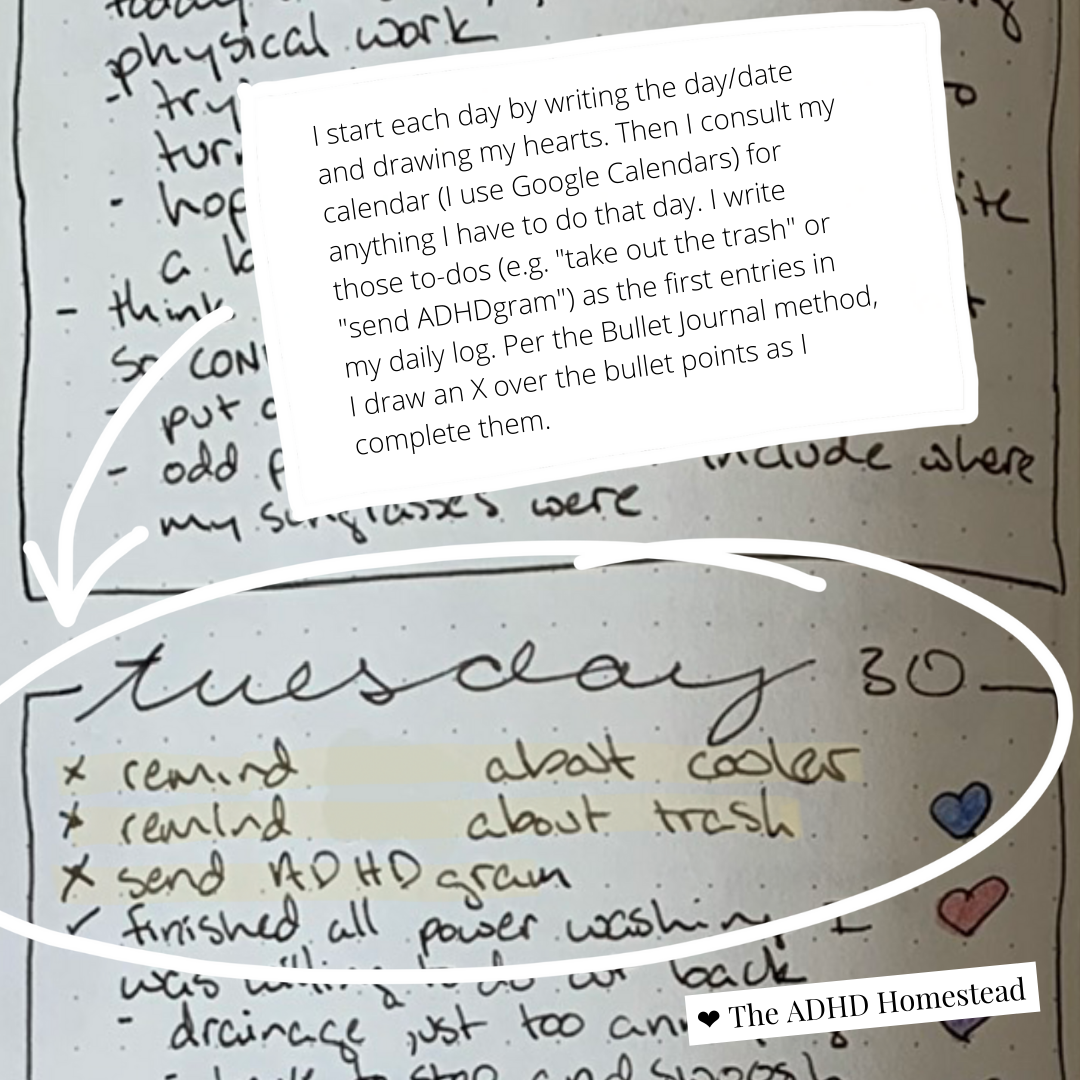 today
physical work
- try
tur
- hop
ite
a lo
- think
So CON
- put a
- odd p include where
my sunglasses were
I start each day by writing the day/date
and drawing my hearts. Then I consult my
calendar (I use Google Calendars) for
anything I have to do that day. I write
those to-dos (e.g. "take out the trash" or
"send ADHDgram") as the first entries in
my daily log. Per the Bullet Journal method,
I draw an X over the bullet points as I
complete them.
tuesday 30
x remind about cooler
x remind about trash
x send ADHDgram
✓ finished all power washing I
was willing to do out back
- drainage just too ann
to stop and
❤ The ADHD Homestead